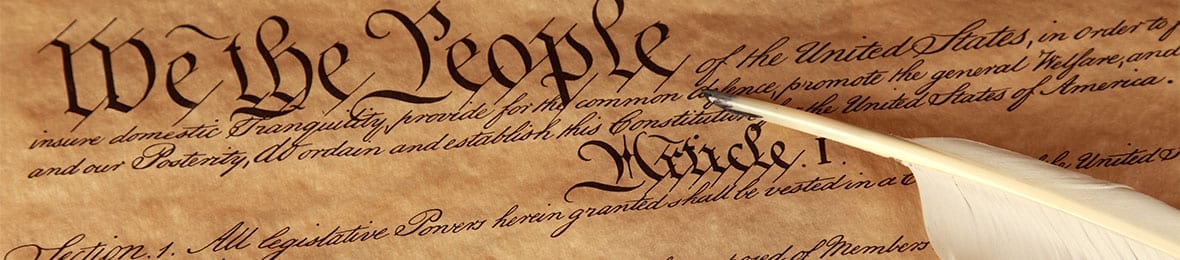 We the People of the United States, in order to
insure domestic Tranquility, provide for the common defence, promote the general Welfare, and
and our Posterity, do ordain and establish this Constitution for the United States of America.
Article. I.
Section. 1. All legislative Powers herein granted shall be vested in a United S
of Members